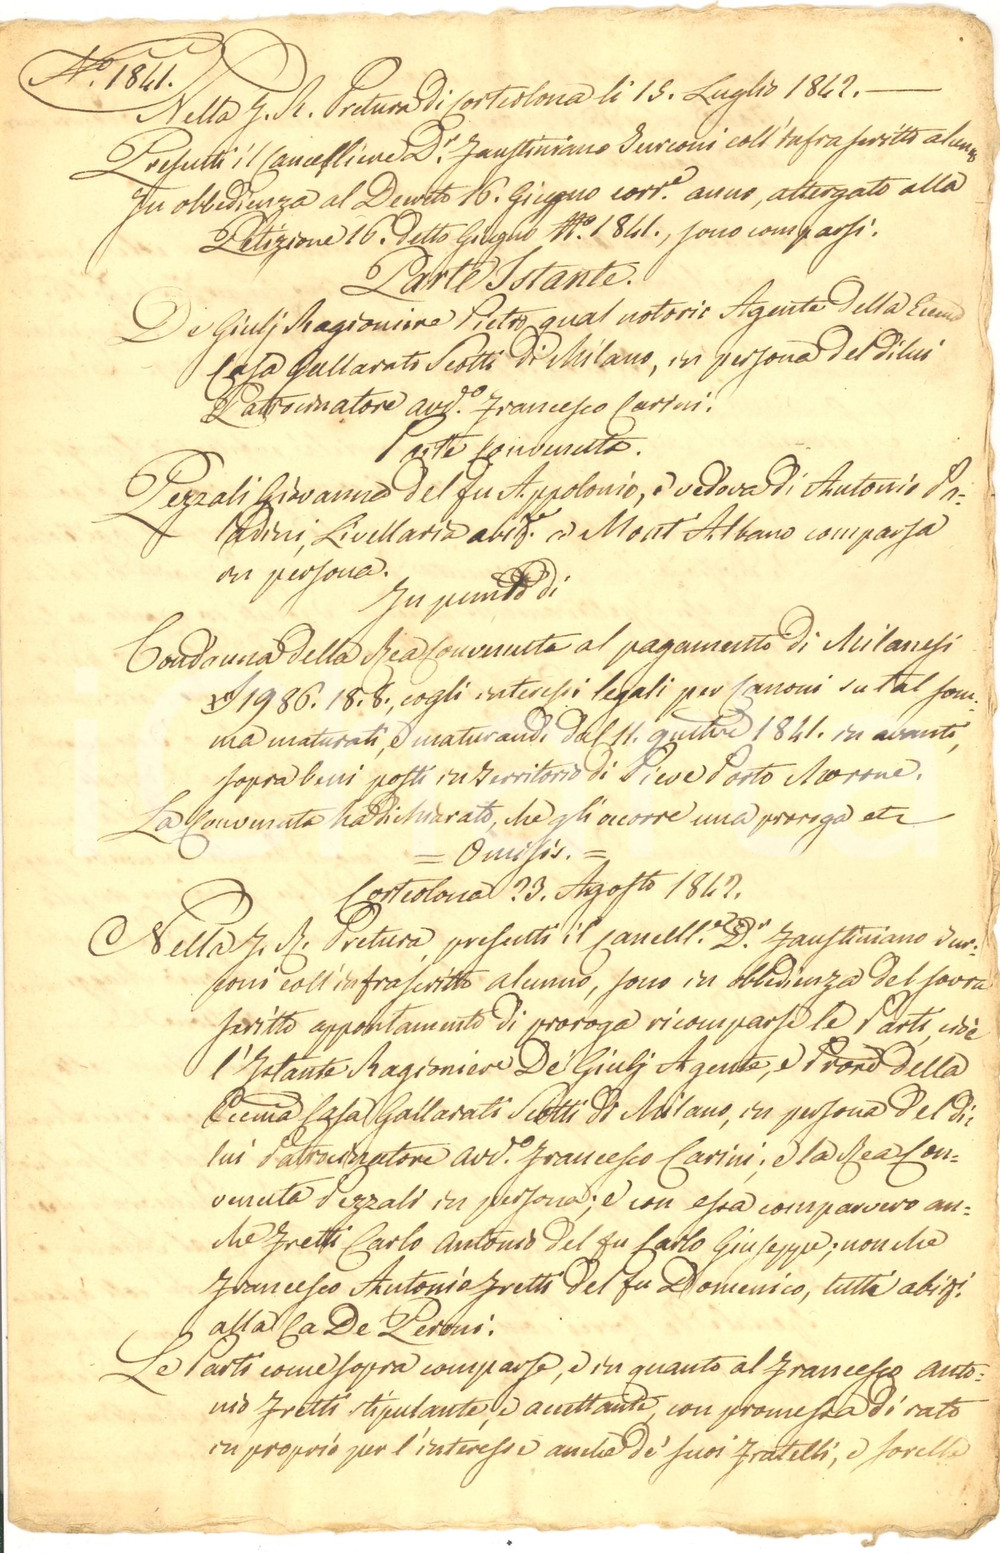 N.° 1841.
Nella I. R. Pretura di Corteolona li 15. Luglio 1842.
Presenti il Cancelliere D.r Faustiniano Surconi coll'infrascritto alunno
In obbedienza al Decreto 16. Giugno corr.e anno, attergato alla
Petizione 16. detto Giugno N.° 1841., sono comparsi.
Parte Istante.
De Giulj Ragioniere Pietro qual notorio Agente della Ecema
Casa Gallarati Scotti di Milano, in persona del dilui
Patrocinatore avv.o Francesco Carini.
Parte Convenuta.
Pezzali Giovanna del fu Appolonio, e vedova di Antonio Pa-
ladini, Livellaria abit.e a Mont'Albano comparsa
in persona.
In punto di
Condanna della Rea Convenuta al pagamento di Milanesi
1986. 18. 8., cogli interessi legali per Canoni su tal som-
ma maturati, e maturandi dal 11. 9mbre 1841. in avanti,
sopra beni posti in Territorio di Pieve Porto Morone.
La Convenuta ha dichiarato, che gli occorre una proroga etc
= Omissis. =
Corteolona 23. Agosto 1842.
Nella I. R. Pretura, presenti il Cancell.e D.r Faustiniano Sur-
coni coll'infrascritto alunno, sono in obbedienza del sovra
scritto appontamento di proroga ricomparse le Parti, cioè
l'Istante Ragioniere De Giulj Agente, e Procr̃e della
Ecema Casa Gallarati Scotti di Milano, in persona del di-
lui Patrocinatore avv.o Francesco Carini; e la Rea Con-
venuta Pezzali in persona; e con essa comparvero an-
che Fretti Carlo Antonio del fu Carlo Giuseppe; nonchè
Francesco Antonio Fretti del fu Domenico, tutti abit.i
alla Ca De Peroni.
Le Parti come sopra comparse, e in quanto al Francesco Anto-
nio Fretti stipulante, e accettante, con promessa di rato
in proprio per l'interesse anche de' suoi Fratelli, e sorelle